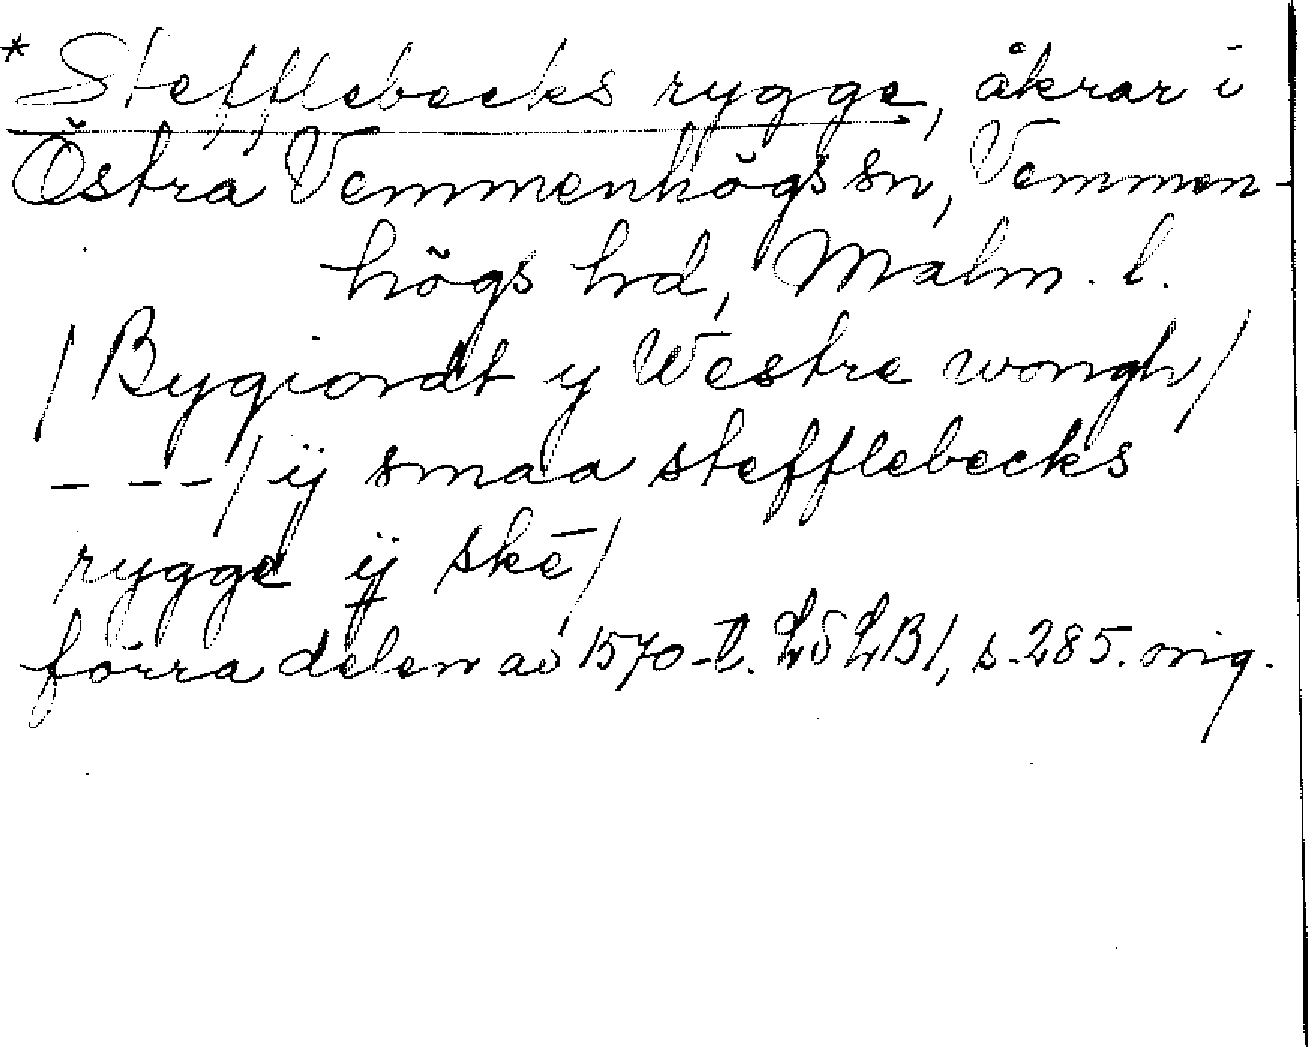 * Stefflebecks rygge, åkrar i
Östra Vemmenhögs sn, Vemmen-
högs hd, Malm. l.
/ Bygiordt y Westre wongh /
- - - / ij smaa stefflebecks
rygge ij skē /
förra delen av 1570-t. LÖLB1, s. 285. orig.